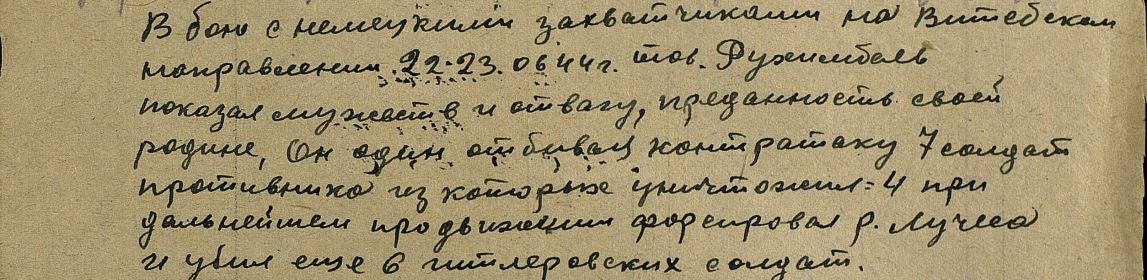 В бою с немецкими захватчиками на Витебском
направлении 22-23.06 44г. тов. Рухимбель
показал мужеств и отвагу, преданность своей
родине, Он один отбивая контратаку 7 солдат
противника из которых уничтожил=4 при
дальнейшем продвижении форсировал р. Лучеса
и убил еще 6 гитлеровских солдат.